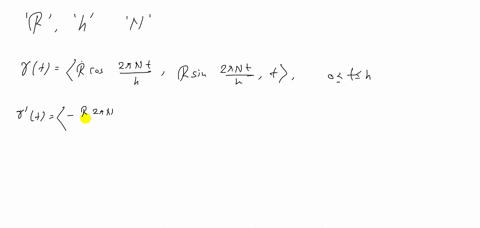 'R', 'h' 'N'
γ(t) = ⟨R cos 2πNt/h, R sin 2πNt/h, t⟩, 0 ≤ t ≤ h
γ'(t) = ⟨- R 2πN